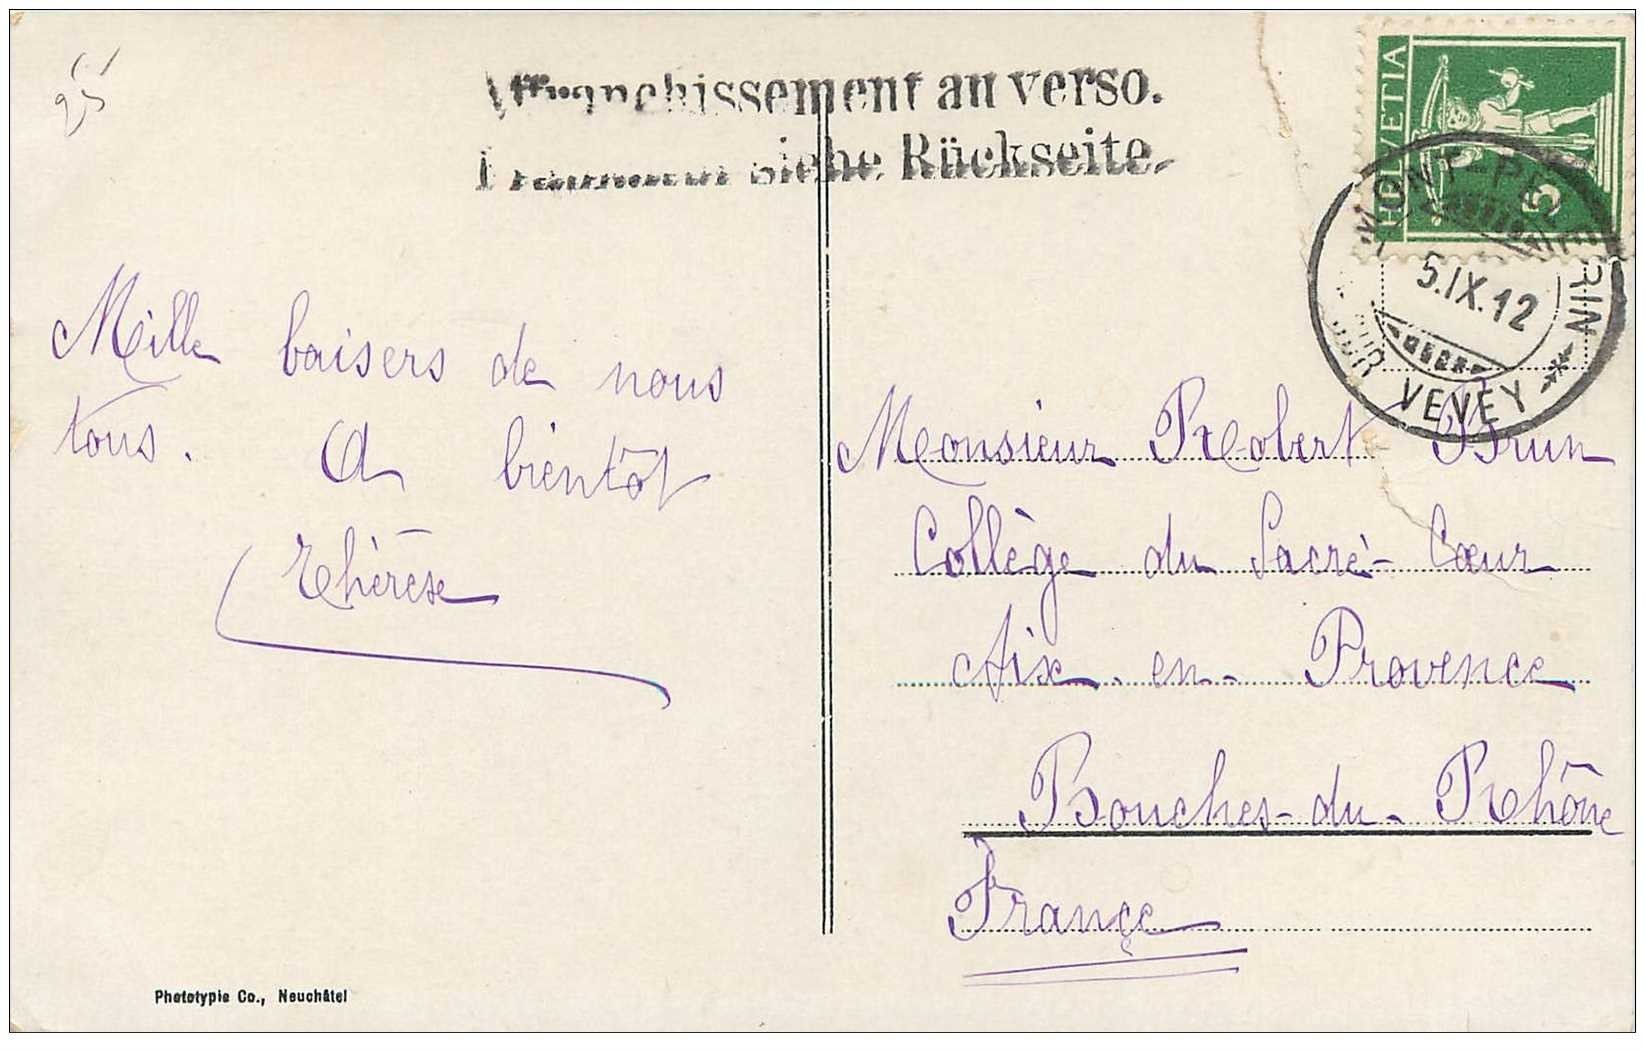 25
Affranchissement au verso.
Frankatur siehe Rückseite.
HELVETIA
5
MONT-PÉLERIN
5.IX.12
SUR VEVEY
Mille baisers de nous
tous. A bientôt
Thérèse
Monsieur Robert Brun
Collège du Sacré-Cœur
Aix-en-Provence
Bouches-du-Rhône
France
Phototypie Co., Neuchâtel